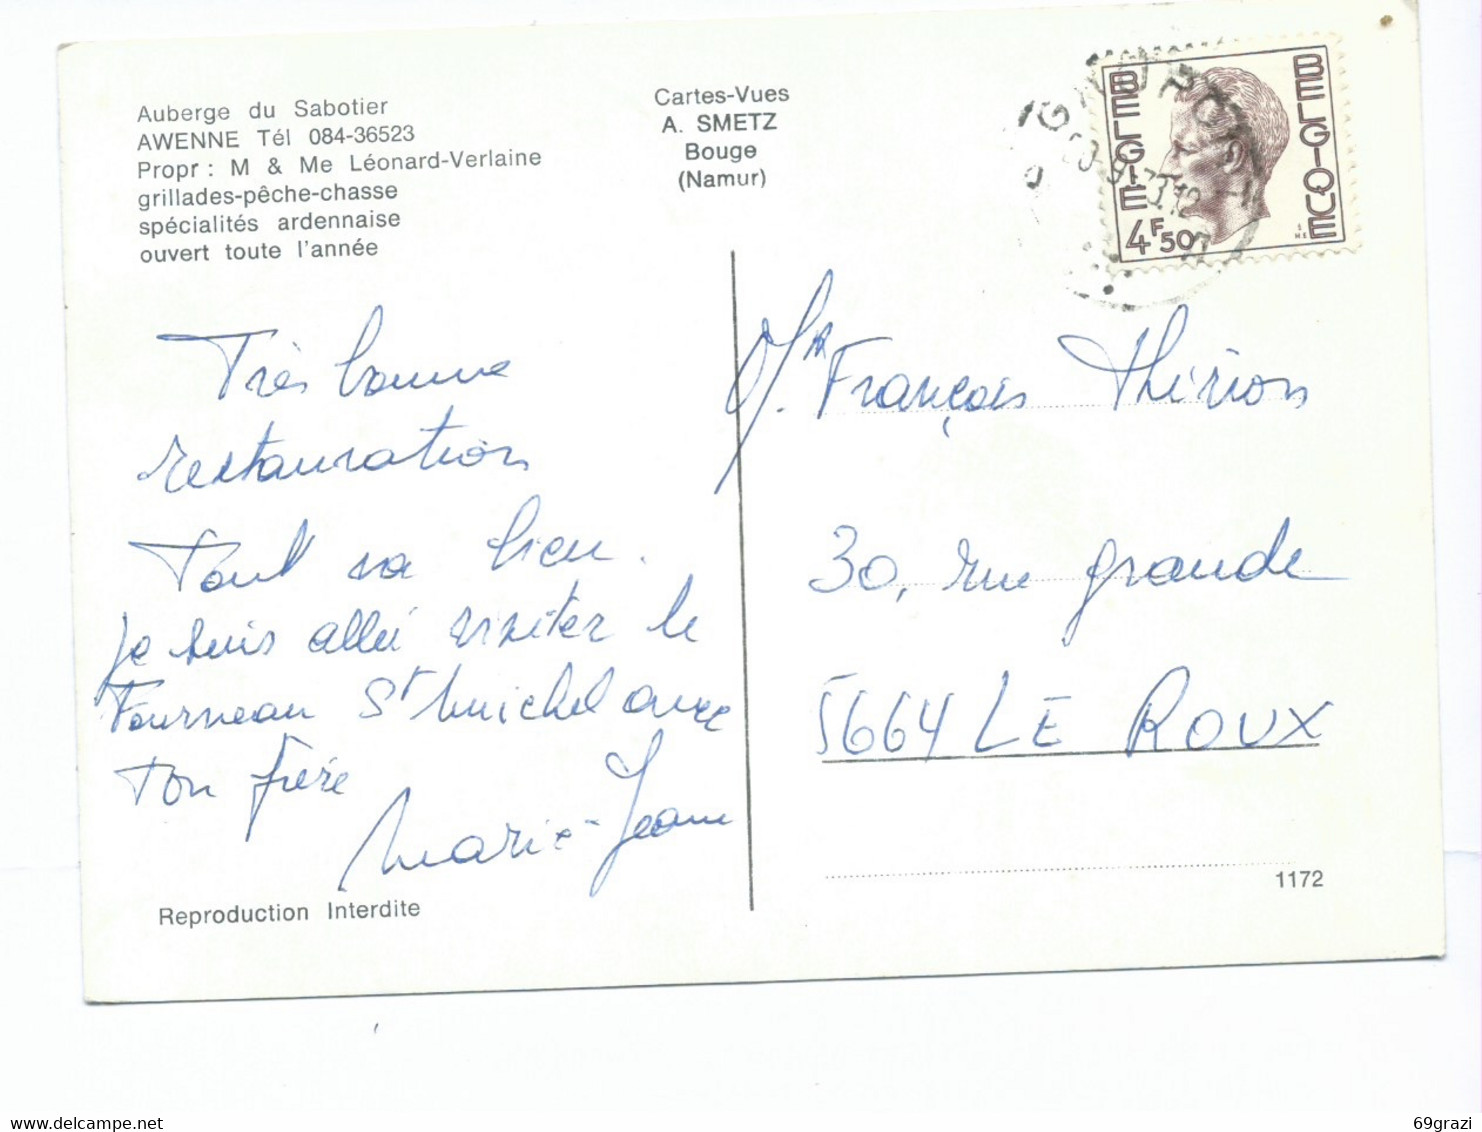 Auberge du Sabotier
AWENNE Tél 084-36523
Propr : M & Me Léonard-Verlaine
grillades-pêche-chasse
spécialités ardennaise
ouvert toute l'année
Cartes-Vues
A. SMETZ
Bouge
(Namur)
BELGIE
BELGIQUE
4F50
Très bonne
restauration
Tout va bien.
Je suis allé visiter le
Fourneau St Michel avec
ton frère
Marie-Jeanne
Mr. François Thirion
30, rue grande
5664 LE ROUX
1172
Reproduction Interdite
delcampe.net
69grazi